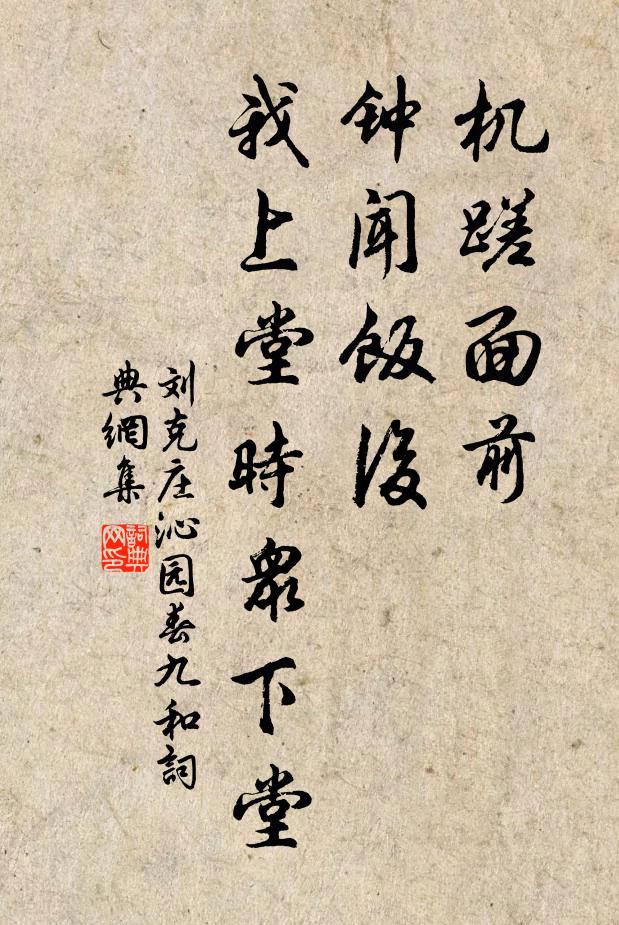 机蹉面前
钟闻饭後
我上堂時衆下堂
刘克庄沁园春九和詞
典網集
詞典網印